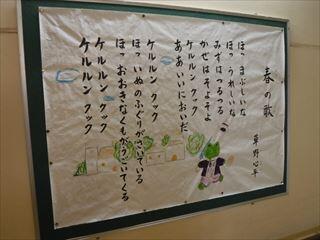 春の歌
草野心平
ほっ まぶしいな
ほっ うれしいな
みずは つるつる
かぜは そよそよ
ケルルン クック
ああいいにおいだ
ケルルン クック
ほっ いぬのふぐりがさいている
ほっ おおきなくもがうごいてくる
ケルルン クック
ケルルン クック